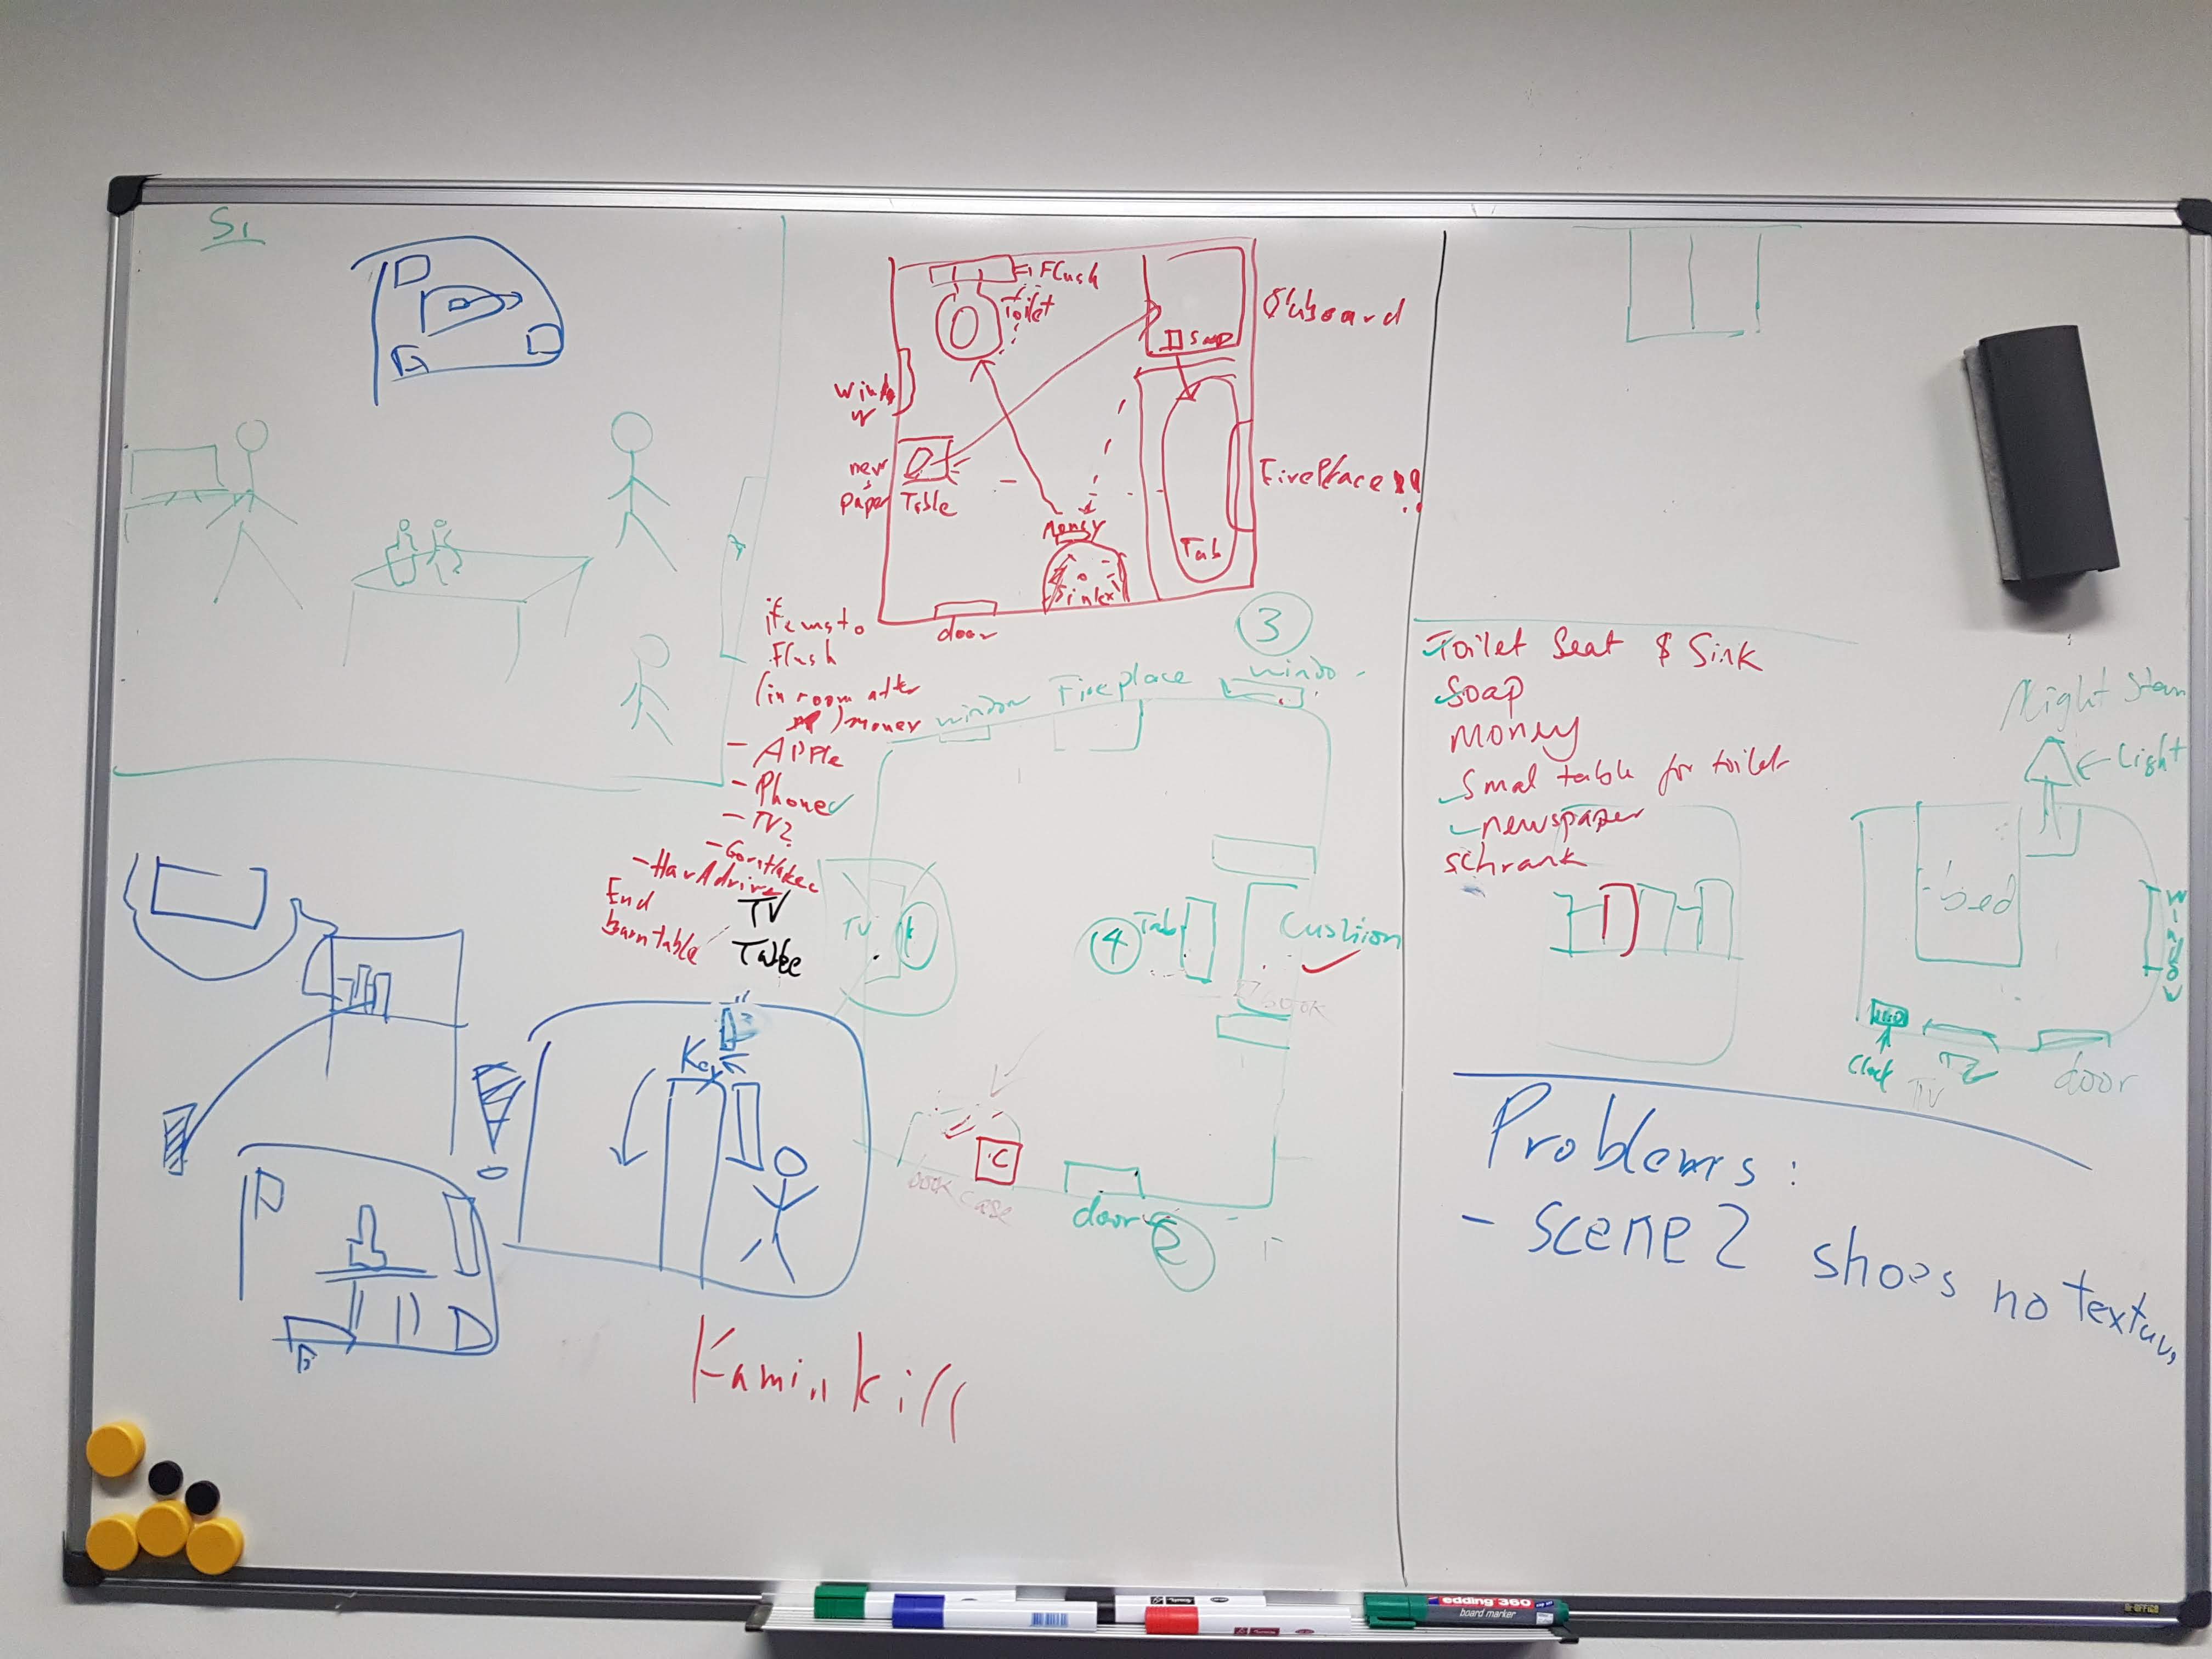 S1
Flush
Toilet
Soap
news
paper
Table
Money
Tab
FirePlace !!
door
items to
Flush
(in room after
) money
- APPle
- Phone
- TV?
- Harddrive
End
burn table
TV
Table
3
window Fireplace windo
TV
4
Tab
Cushion
book
Key
C
book case
door 2
Kaminkill
P
D
Toilet Seat & Sink
Soap
Money
Smal table for toilet
newspaper
schrank
Night Stan
Light
bed
window
Clock
TV
door
Problems:
- scene 2 shoes no textur
edding 360
board marker